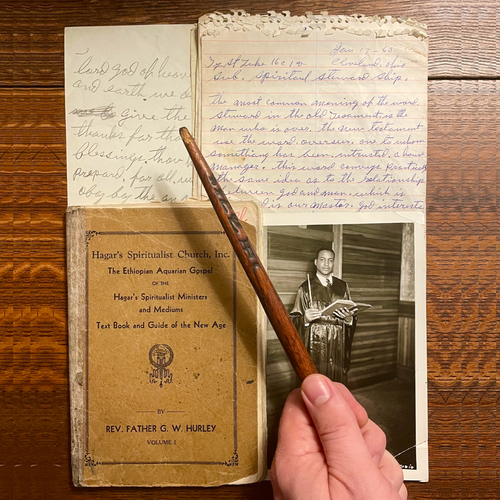 Lord god of heaven
and earth, we do
give the
thanks for tha
blessings, thou
prepard, for all, w
obey by the and
Jan 13 - 63
Text St Luke 16 c 1 v Cleveland, Ohio
Sub. Spiritual Steward Ship.
The most common meaning of the word
steward in the old Testament, is the
man who is over. the new testament
use the word. overseer, one to whom
something has been, intrusted, a house
manager. this word conveys practically
the same idea as to the relationship
between god and man. which is
is our master. god interests
Hagar's Spiritualist Church, Inc.
The Ethiopian Aquarian Gospel
OF THE
Hagar's Spiritualist Ministers
and Mediums
Text Book and Guide of the New Age
BY
REV. FATHER G. W. HURLEY
VOLUME I